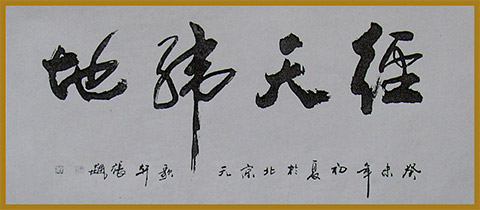 經天緯地
癸未年初夏於北京元 軒張